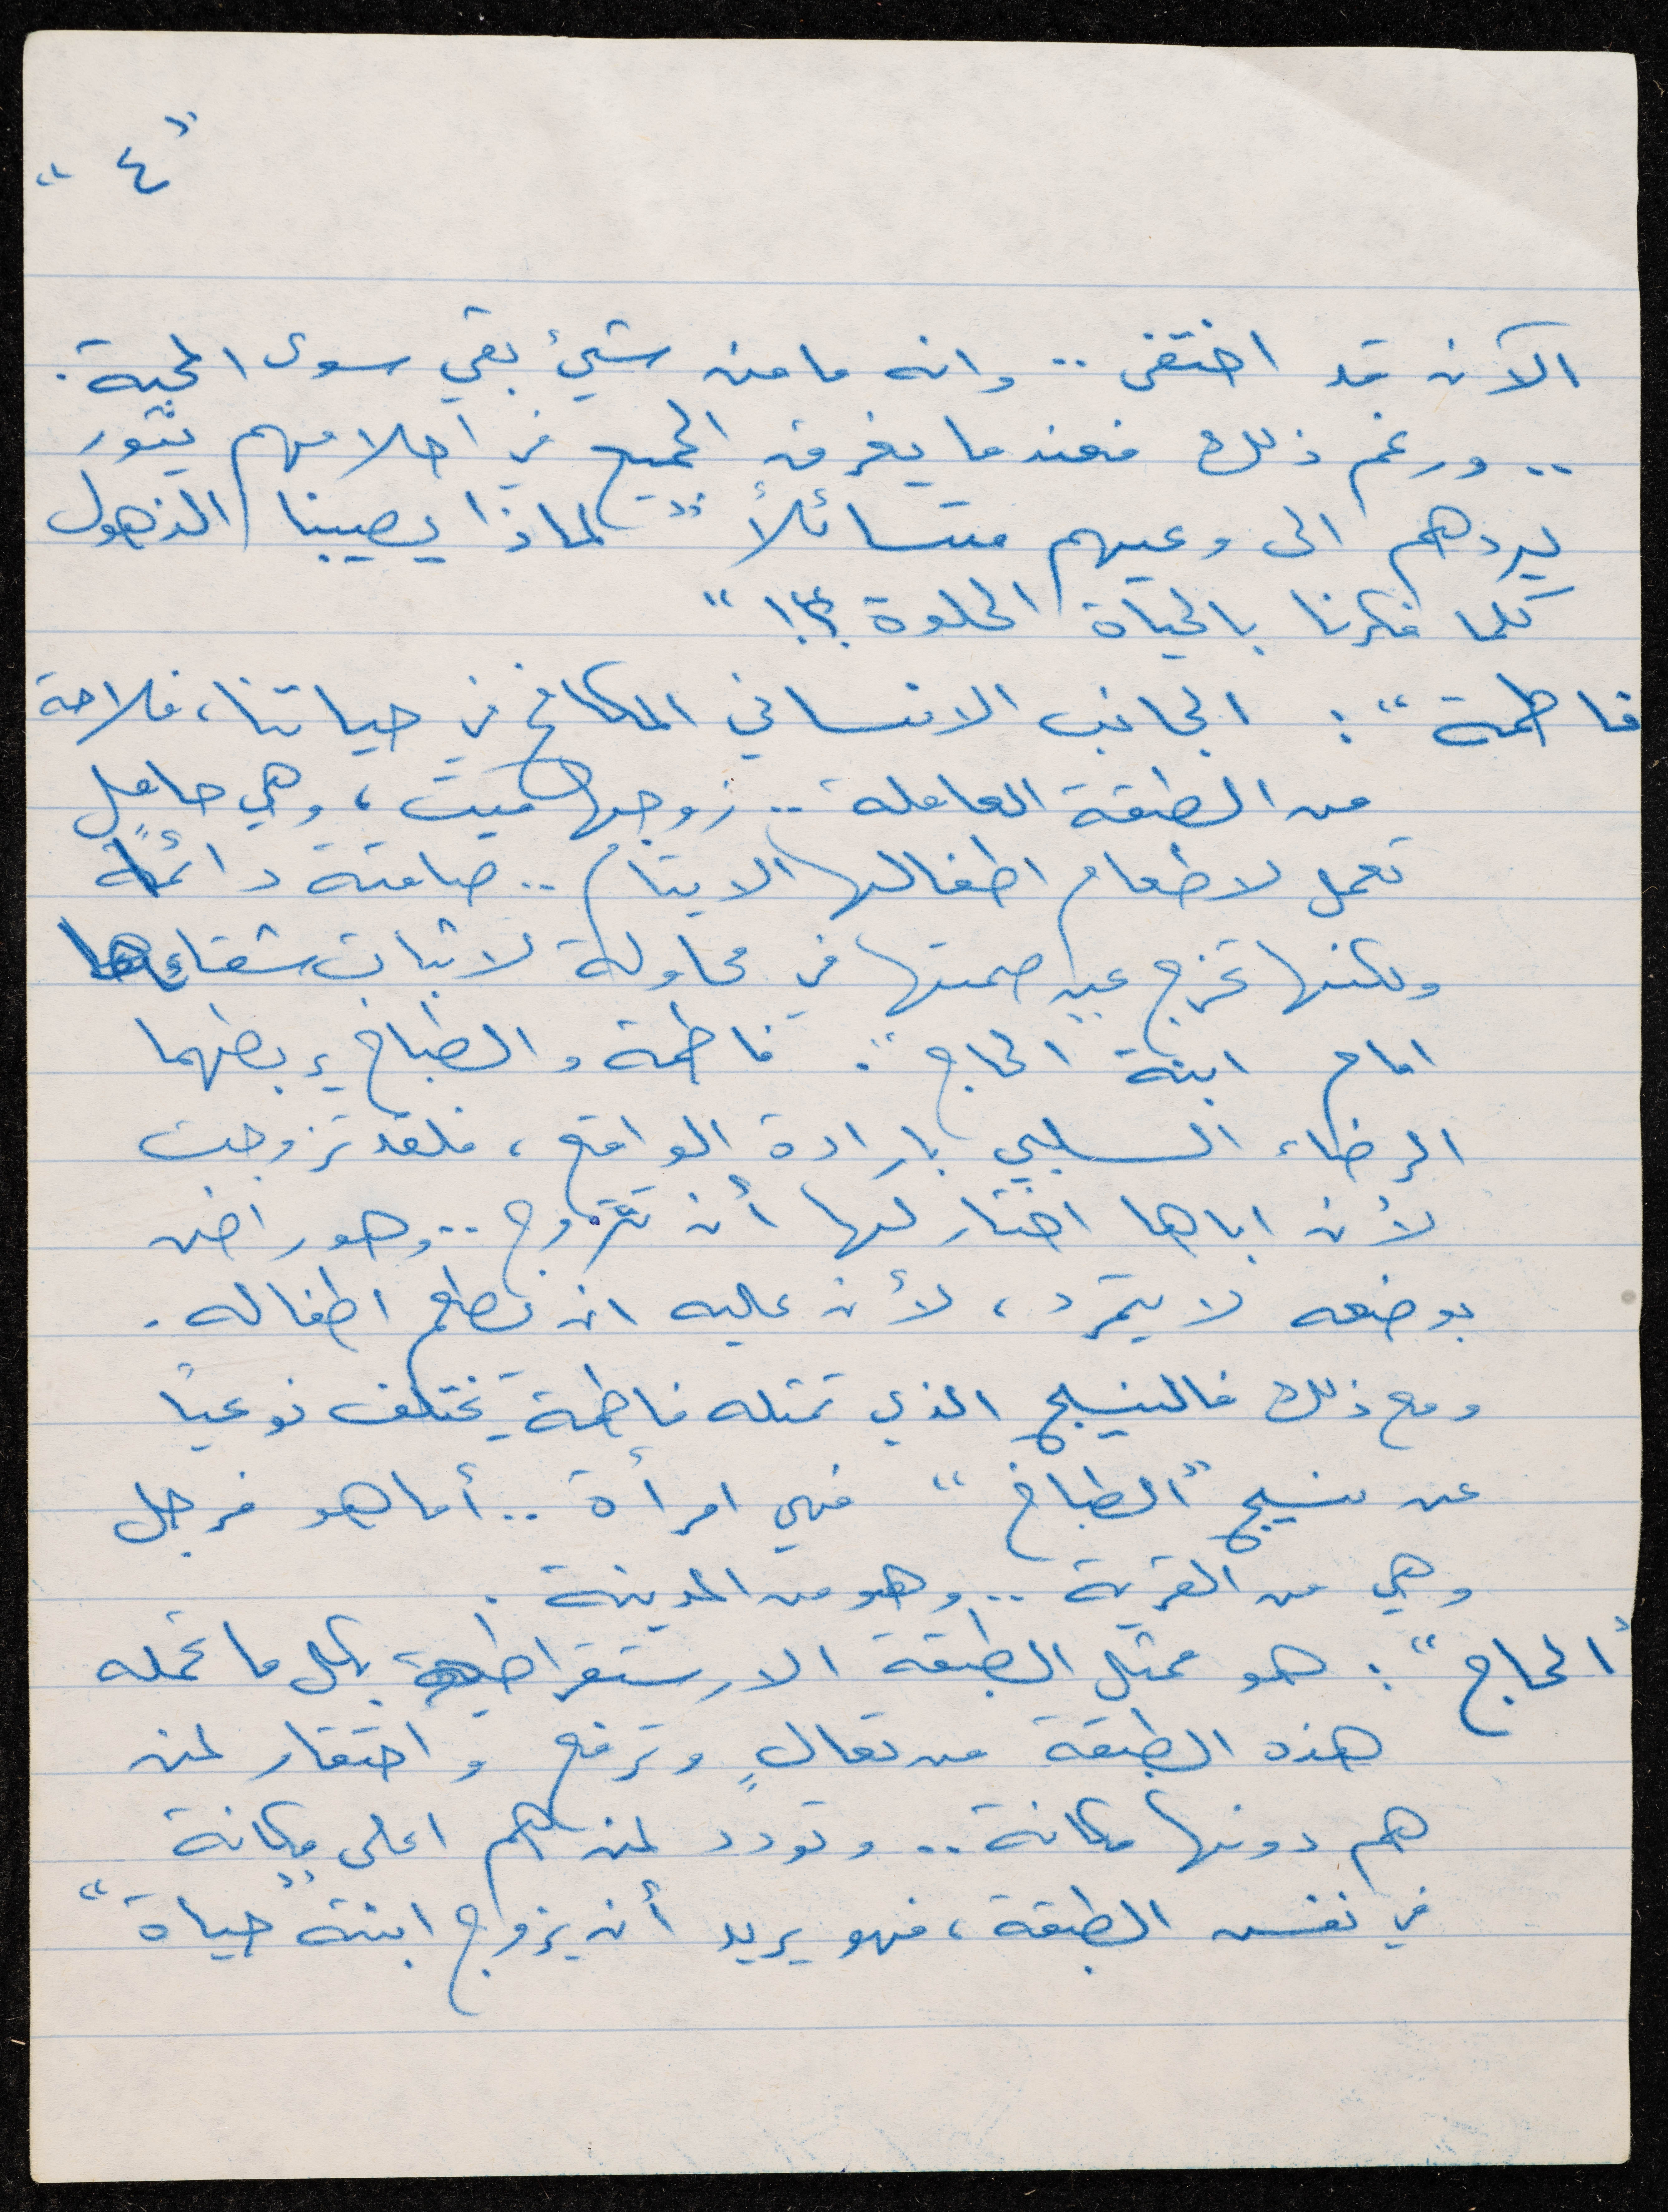 "٤"
الآن قد اختفى .. وانه مامن شيئ بقي سوى المحبة .
.. ورغم ذلك فعندما يغرق الجميع في احلامهم يثور
يردهم الى وعيهم متسائلاً " لماذا يصيبنا الذهول
كلما فكرنا بالحياة الحلوة ؟! "
فاطمة " : الجانب الانساني المكافح في حياتنا ، فلاحة
من الطبقة العاملة .. زوجها ميت ، وهي حامل
تعمل لاطعام اطفالها الايتام .. صامتة دائماً
ولكنها تخرج عن صمتها في محاولة لاثبات شقاءها
امام ابنة الحاج " . فاطمة والطباخ يربطهما
الرضاء السلبي بارادة الواقع ، فلقد تزوجت
لأن اباها اختار لها أن تتزوج .. وهو راض
بوضعه لا يتمرد ، لأن عليه ان يطعم اطفاله .
ومع ذلك فالنسيج الذي تمثله فاطمة يختلف نوعياً
عن نسيج "الطباخ" فهي امرأة .. أما هو فرجل
وهي من القرية .. وهو من المدينة .
"الحاج" : هو ممثل الطبقة الارستقراطية بكل ما تحمله
هذه الطبقة من تعالٍ وترفع واحتقار لمن
هم دونها مكانة .. وتودد لمن هم اعلى مكانة
في نفس الطبقة ، فهو يريد أن يزوج ابنته "حياة"